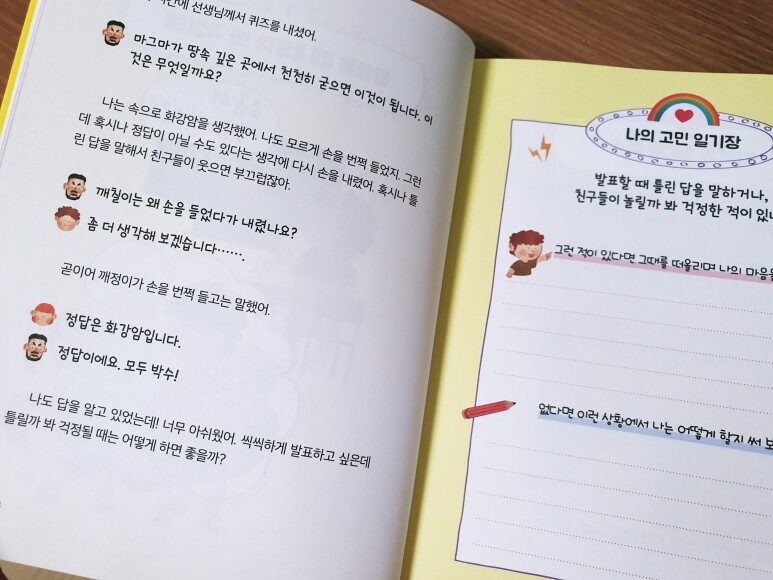 선생님께서 퀴즈를 내셨어.
마그마가 땅속 깊은 곳에서 천천히 굳으면 이것이 됩니다. 이
것은 무엇일까요?
나는 속으로 화강암을 생각했어. 나도 모르게 손을 번쩍 들었지. 그런
데 혹시나 정답이 아닐 수도 있다는 생각에 다시 손을 내렸어. 혹시나 틀
린 답을 말해서 친구들이 웃으면 부끄럽잖아.
깨칠이는 왜 손을 들었다가 내렸나요?
좀 더 생각해 보겠습니다…….
곧이어 깨정이가 손을 번쩍 들고는 말했어.
정답은 화강암입니다.
정답이에요. 모두 박수!
나도 답을 알고 있었는데! 너무 아쉬웠어. 씩씩하게 발표하고 싶은데
틀릴까 봐 걱정될 때는 어떻게 하면 좋을까?
나의 고민 일기장
발표할 때 틀린 답을 말하거나,
친구들이 놀릴까 봐 걱정한 적이 있
그런 적이 있다면 그때를 떠올리며 나의 마음을
없다면 이런 상황에서 나는 어떻게 할지 써 보